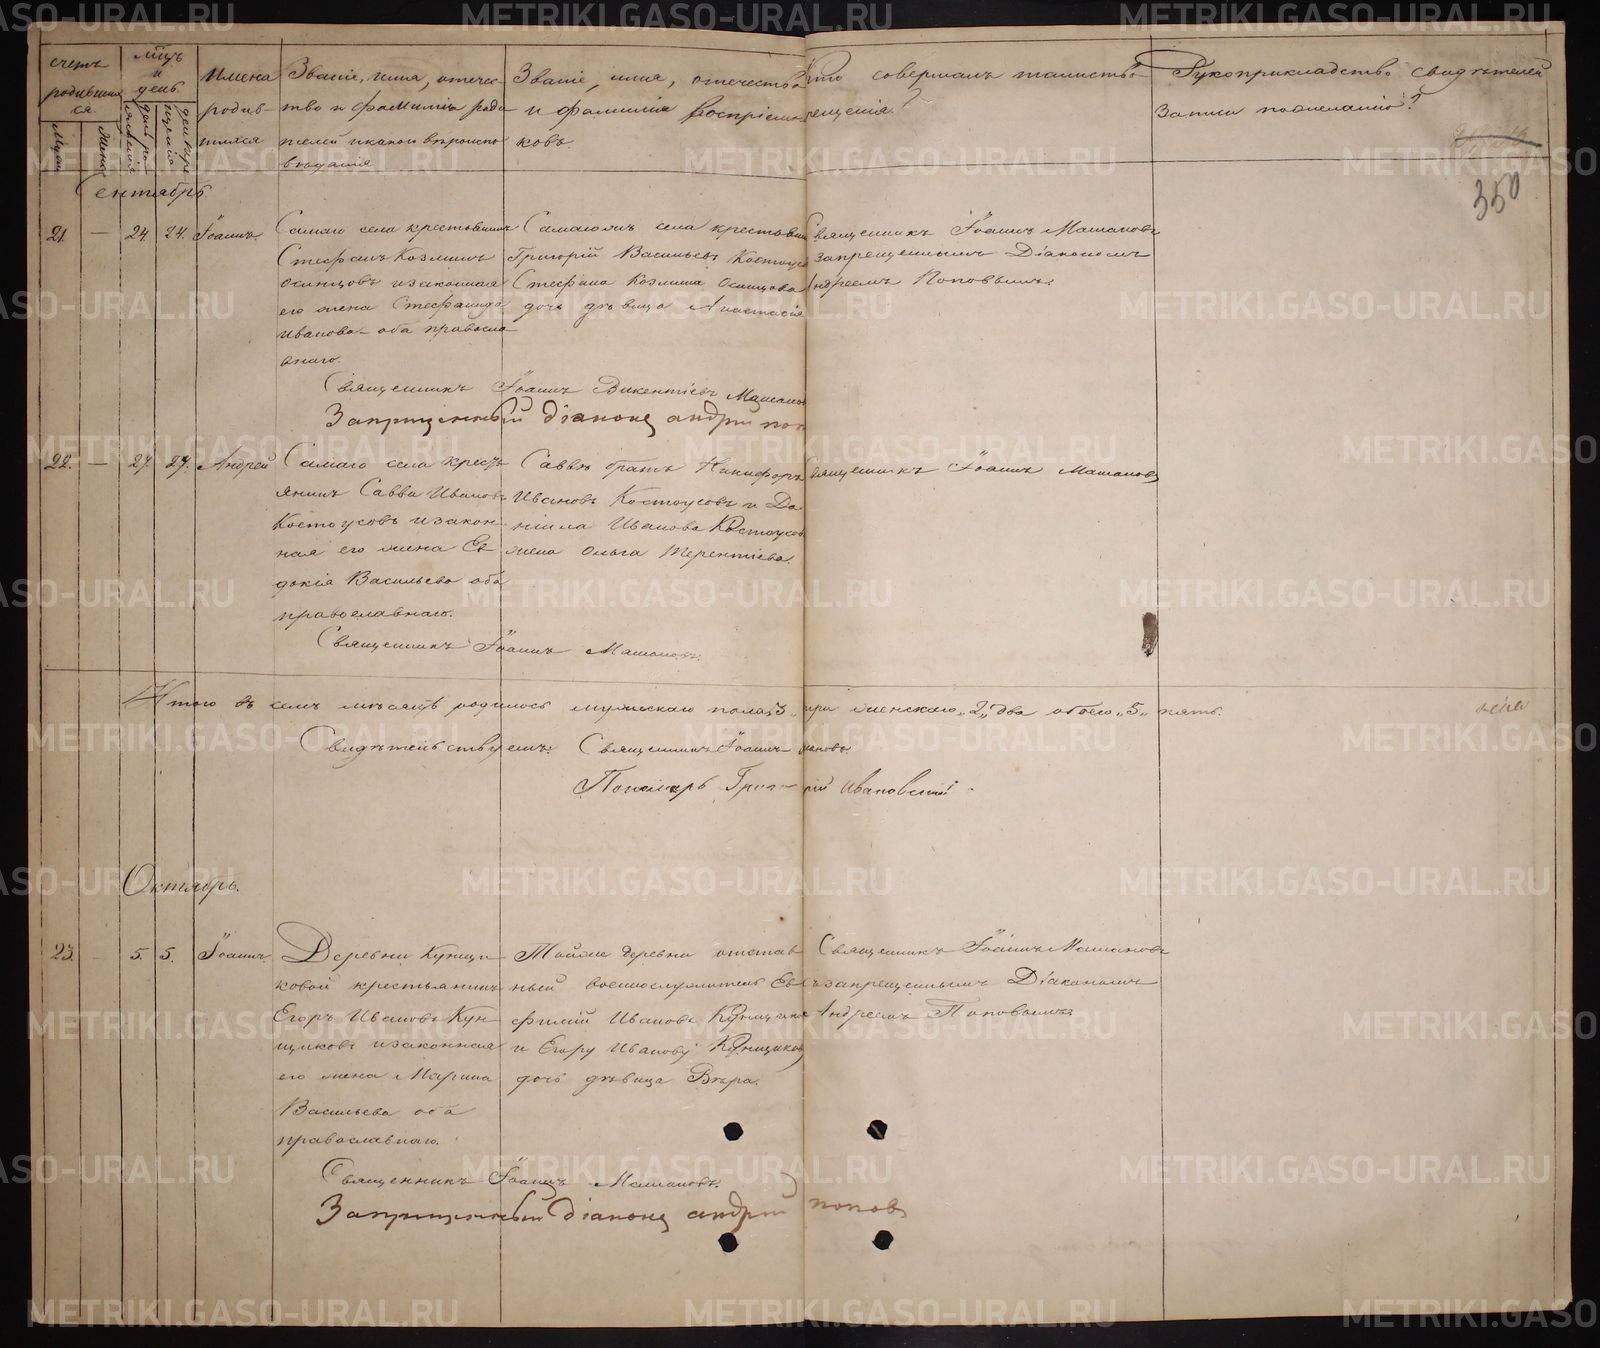 счетъ родившихся
Муж.
Жен.
мѣцъ и день
рожденія
крещенія
Имена родившихся
Званіе, имя, отечество и фамилія родителей и какого вѣроисповѣданія
Званіе, имя, отечество и фамилія воспріемниковъ.
Кто совершалъ таинство крещенія?
Рукоприкладство свидѣтелей записи по желанію?
350
Сентябрь
21. — 24. 24. Іоаннъ.
Самаго села крестьянинъ
Стефанъ Козминъ
Осинцовъ и законная
его жена Стефанида
Иванова оба правосла
внаго.
Самагожъ села крестьянинъ
Григорій Васильевъ Костоусо
Стефана Козмина Осинцова
дочь дѣвица Анастасія
Священникъ Іоаннъ Машановъ
запрещеннымъ Діакономъ
Андреемъ Поповымъ.
Священникъ Іоаннъ Викентіевъ Машанов
Запрещенный діаконъ андрей поп
22. — 27. 27. Андрей
Самаго села кресть
янинъ Савва Ивановъ
Костоусовъ и закон
ная его жена Ев
докія Васильева оба
православнаго.
Саввѣ братъ Никифоръ
Ивановъ Костоусовъ и Да
ніила Иванова Костоусов
жена Ольга Терентіева.
Священникъ Іоаннъ Машановъ
Священникъ Іоаннъ Машановъ.
Итого въ семъ мѣсяцѣ родилось мужескаго пола „3„ три женскаго „2„ два обоего „5„ пять.
Свидѣтельствуемъ: Священникъ Іоаннъ ановъ.
Пономарь Григорій Ивановскій
Октябрь.
23. — 5. 5. Іоаннъ.
Деревни Кунщи
ковой крестьянинъ
Егоръ Ивановъ Кун
щиковъ и законная
его жена Марина
Васильева оба
православнаго.
Тойже деревни отстав
ный военнослужитель Ев
фимій Ивановъ Кунщико
и Егору Иванову Кунщиков
дочь дѣвица Вѣра.
Священникъ Іоаннъ Машановъ
съ запрещеннымъ Діакономъ
Андреемъ Поповымъ
Священникъ Іоаннъ Машановъ.
Запрещенный діаконъ андрей попов
METRIKI.GASO-URAL.RU